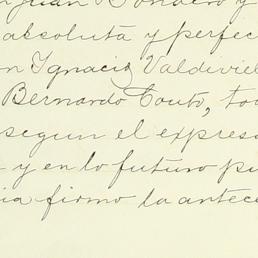 Juan Romero y
absoluta y perfec
n Ignacio Valdiviel
Bernardo Couto, to
segun el expresa
y en lo futuro pu
ia firmo la antece